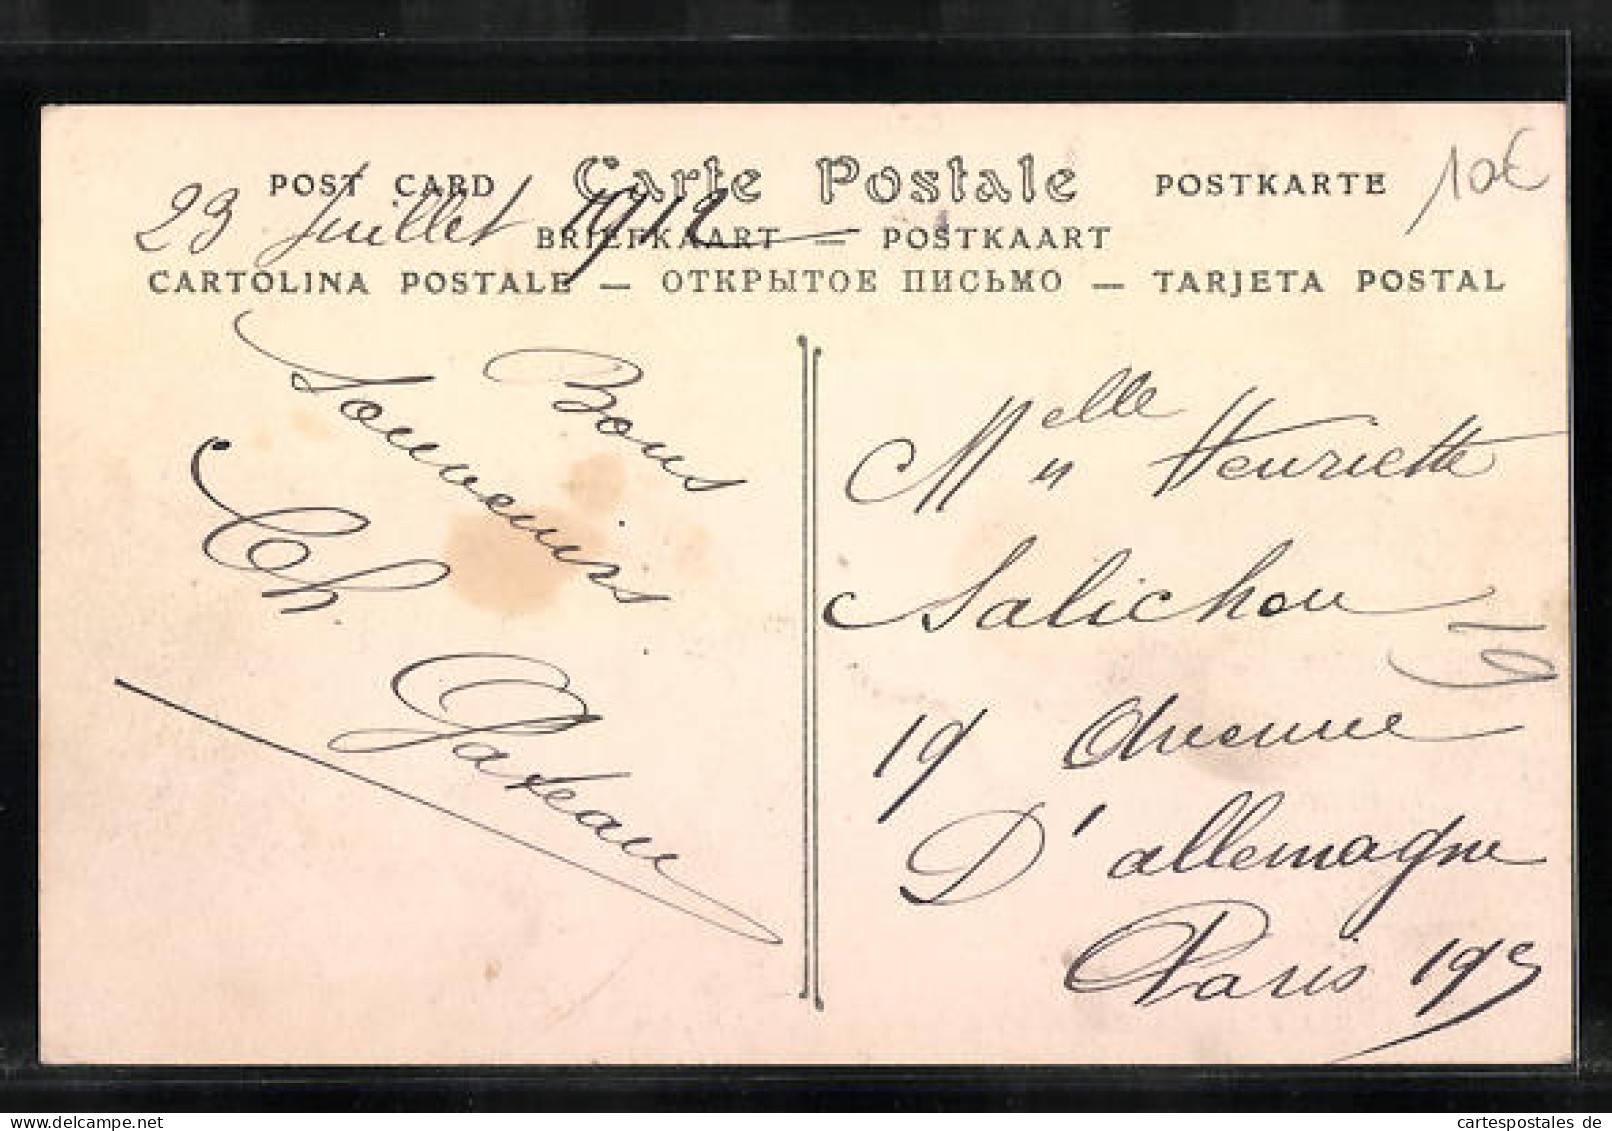 POST CARD Carte Postale POSTKARTE
10€
23 Juillet 1912
BRIEFKAART — POSTKAART
CARTOLINA POSTALE — ОТКРЫТОЕ ПИСЬМО — TARJETA POSTAL
Bons
Souvenirs.
Ch.
Gateau
Melle Henriette
Salichon
19 Avenue
D'allemagne
Paris 19e
cartespostales de